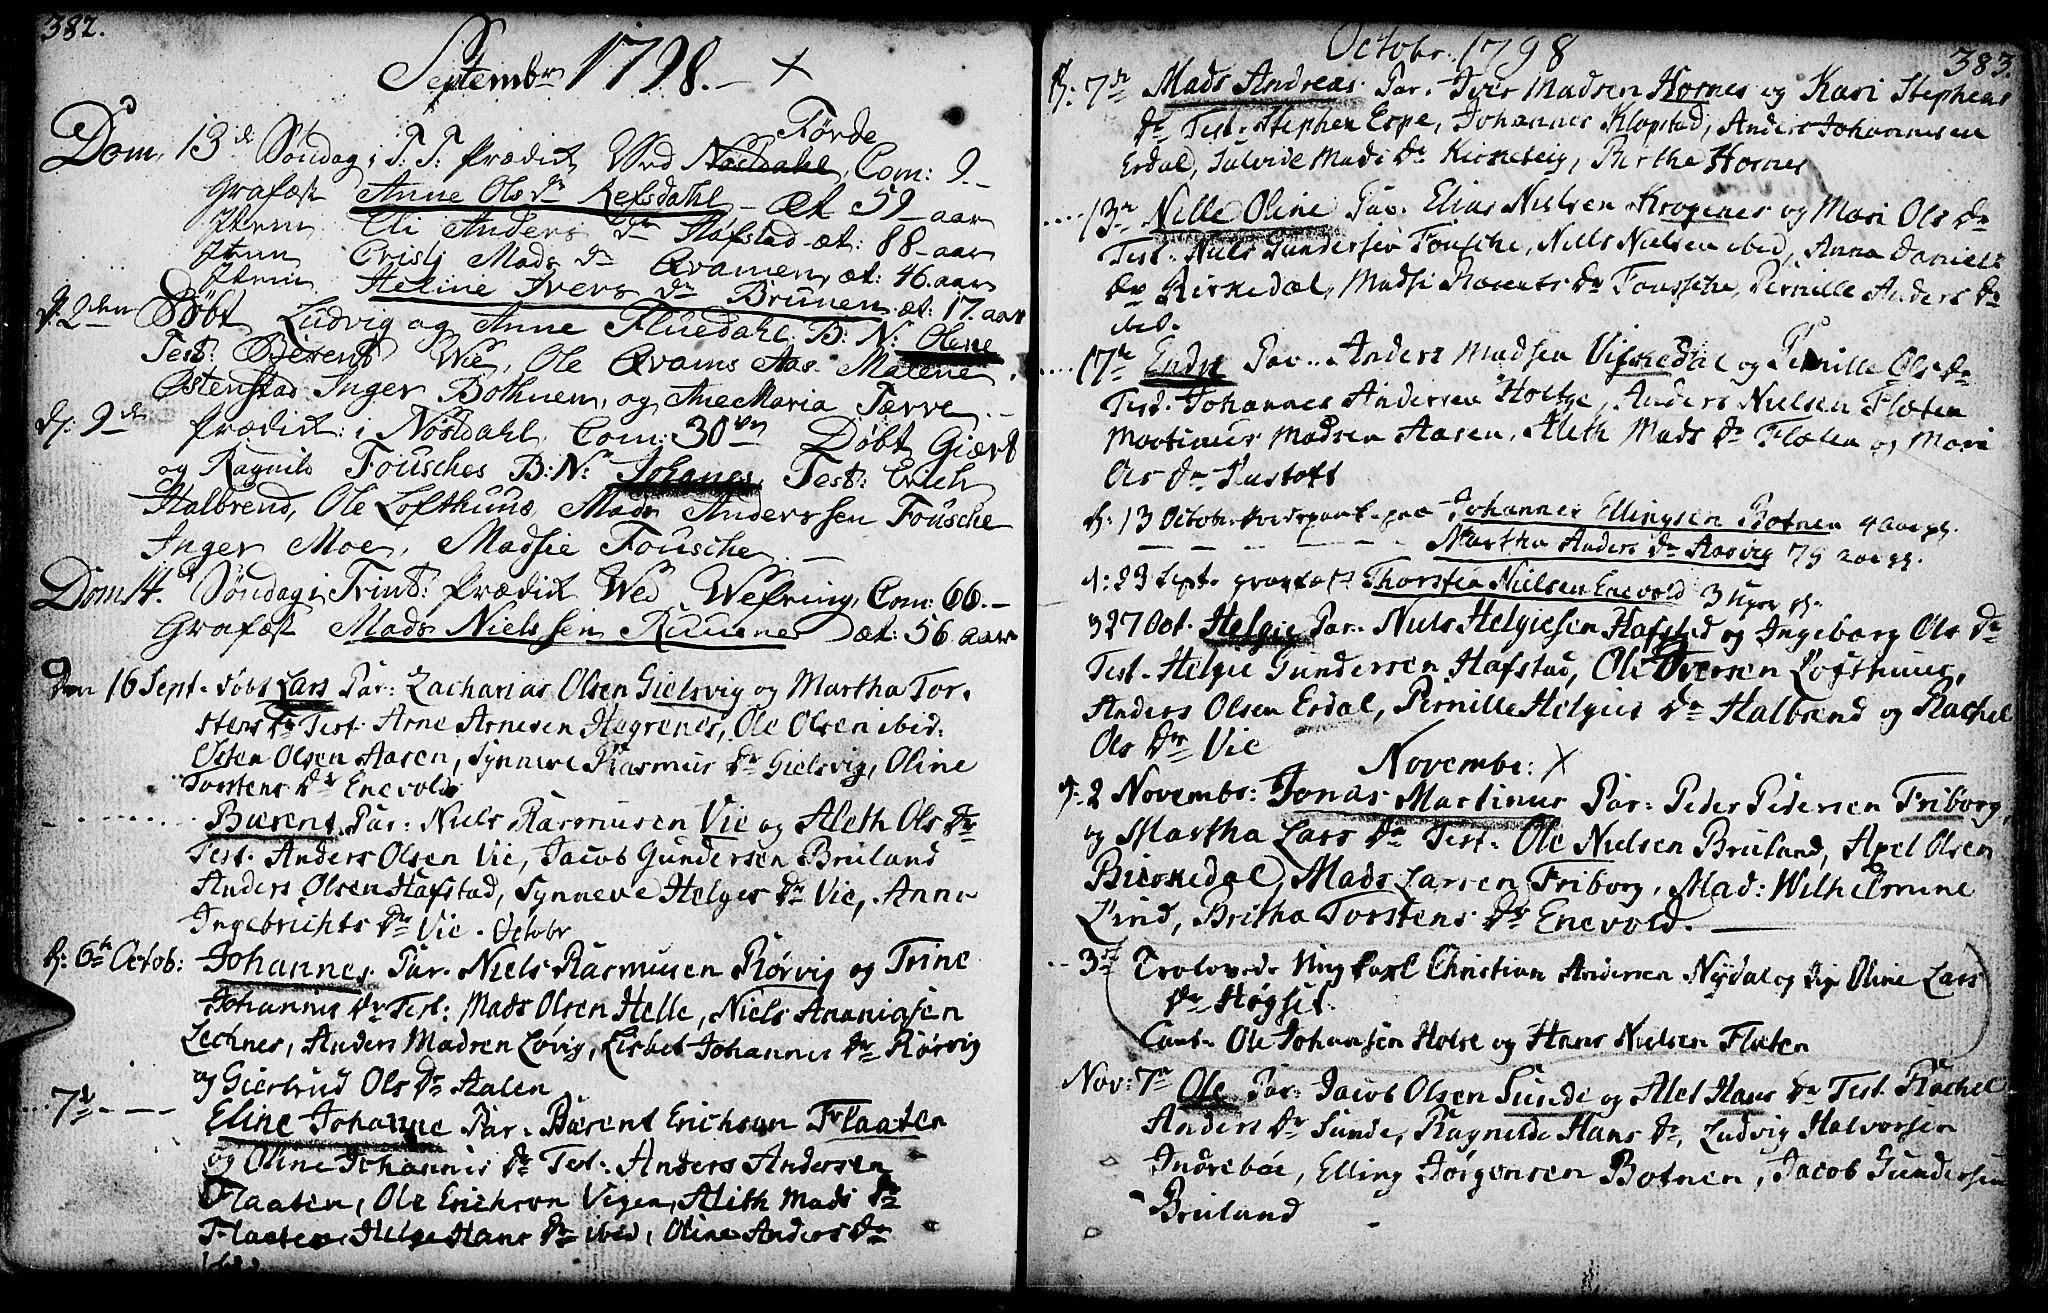 382.
Septembr 1798. – X
Førde
Dom. 13de Søndag i T. T. Prædict Wed Nøstdahl, Com: 9.–
Grafæst Anne Ols dr Refsdahl – Æt 59 – aar
Item Eli Anders dr Hafstad – æt: 88 – aar
Item Cristi Mads dr Qvamen, æt: 46. aar
Item Heline Ivers dr Brunen æt: 17. aar
d. 2den Døbt Ludvig og Anne Fluedahl. B: N: Olene
Test: Berent Wie, Ole Qvams Aas Malene
Østenstad Inger Bothnem, og Ane Maria Tærre.–
d: 9de Prædict: i Nøstdahl Com: 30 Døbt Giært
og Ragnild Fousches B: N: Johanes, Test: Erich
Halbrend, Ole Lofthuus, Mads Anderssen Fousche
Inger Moe, Madsie Fousche –
Dom 14. Søndag i Trint: Prædict Wed Wefring, Com: 66.–
Grafæst Mads Nielssen Ruunes Æt: 56 aar
den 16 Sept. døbt Lars Par: Zacharias Olsen Gielsvig og Martha Tor-
stens dr Test. Arne Arnesen Hegrenes, Ole Olsen ibid:
Osten Olsen Aasen, Synneve Rasmus dr Gielsvig, Oline
Torstens dr Enevold
Bærent Par: Niels Rasmusen Vie og Aleth Ols dr
Test. Anders Olsen Vie, Jacob Gundersen Bruland
Anders Olsen Hafstad, Synneve Helges dr Vie, Anna
Ingebrichts dr Vie. Octobr
d: 6te Octob: Johannes. Par. Niels Rasmusen Rørvig og Trine
Johannis dr Test: Mads Olsen Helle, Niels Ananiasen
Lechnes, Anders Madsen Løvig, Lisbet Johannes dr Rørvig
og Giertrud Ols dr Aalen
7de Eline Johanne Par. Bærent Erichsen Flaaten
og Oline Johannis dr Test: Anders Andersen
Flaaten, Ole Erichsen Vigen, Alith Mads dr
Flaaten, Helge Hans dr ibid, Oline Anders dr
ibid
Octobr. 1798
383.
d: 7de Mads Andreas Par. Iver Madsen Hornes og Kari Stephens
dr Test. Stephen Espe, Johannes Klopstad, Anders Johannesen
Erdal, Sulvide Mads dr Kirketeig, Birthe Hornes
13de Nille Oline Par. Elias Nielsen Krogenes og Mari Ols dr
Test. Niels Gundersen Fousche, Niels Nielsen ibid, Anna Daniels
dr Birkedal, Madsi Bærents dr Foussche, Pernille Anders dr
ibid.
17de Endre Par. Anders Madsen Vifkedal og Pernille Ols dr
Test. Johannes Andersen Holtze, Anders Nielsen Floten
Mortinus Madsen Aasen, Aleth Mads dr Floten og Mari
Ols dr Kustoft
d: 13 October Jordspaakt. paa Johannes Ellingsen Botnen 4 aar gl.
Martha Anders dr Aasvig 75 aar gl.
d: 23 Sept. grafæst Thorsten Nielsen Enevold 3 uger gl.
27 Oct. Helgie Par. Niels Helgiesen Hafsted og Ingeborg Ols dr
Test. Helgie Gundersen Hafstad, Ole Iversen Lofthuus,
Anders Olsen Erdal, Pernille Helgies dr Halbrend og Rachel
Ols dr Vie
Novembr: X
d: 2 Novembr: Jonas Martinus Par: Peder Pedersen Friborg,
og Martha Lars dr Test. Ole Nielsen Bruland, Axel Olsen
Bierkedal, Mads Larsen Friborg, Mad: Wilhelmine
Lind, Britha Torstens dr Enevold. –
3de Trolovede Ungkarl Christian Andersen Nydal og Pige Oline Lars
dr Høgset.
Caut. Ole Johansen Holse og Hans Nielsen Floten
Nov: 7de Ole Par: Jacob Olsen Sunde og Alet Hans dr Test. Rachel
Anders dr Sunde, Ragnilde Hans dr, Ludvig Halvorsen
Indrebøe, Elling Jørgensen Botnen, Jacob Gundersen
Bruland